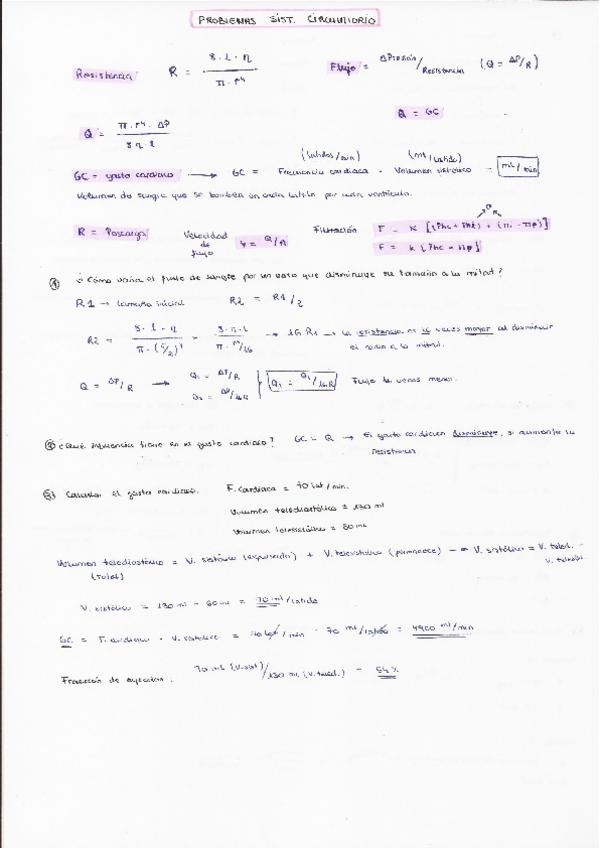 PROBLEMAS SIST. CIRCULATORIO
Resistencia R = 8·l·η / π·r⁴ Flujo = ΔPresión/Resistencia (Q = ΔP/R)
Q = π·r⁴·ΔP / 8·η·l Q = GC
(latidos/min) (ml/latido)
GC = gasto cardiaco → GC = Frecuencia cardiaca · Volumen sistólico = ml/min
Volumen de sangre que se bombea en cada latido por cada ventrículo.
R = Poscarga Velocidad de flujo Filtración
F = K
① ¿Cómo varía el flujo de sangre por un vaso que disminuye su tamaño a la mitad?
R1 → tamaño inicial R2 = R1/2
R2 = 8·l·η / π·(r/2)⁴ = 8·η·l / π·r⁴/16 → 16 R1 → La resistencia es 16 veces mayor al disminuir
el radio a la mitad.
Q = ΔP/R → Q1 = ΔP/R
Q2 = ΔP/16R Flujo 16 veces menor.
② ¿Qué influencia tiene en el gasto cardiaco? GC = Q → El gasto cardiaco disminuye, si aumenta la
resistencia
③ Calcular el gasto cardiaco. F. cardiaca = 70 lat/min.
Volumen telediastólico = 130 ml
Volumen telesistólico = 60 ml
Volumen telediastólico = V. sistólico (expulsado) + V. telesistólico (permanece) → V. sistólico = V. teled. -
(total) V. telesis
V. sistólico = 130 ml - 60 ml = 70 ml/latido
GC = F. cardiaca · V. sistólico = 70 lat/min · 70 ml/latido = 4900 ml/min
Fracción de eyección. 70 ml (V. sist)/130 ml (V. teled.) = 54%